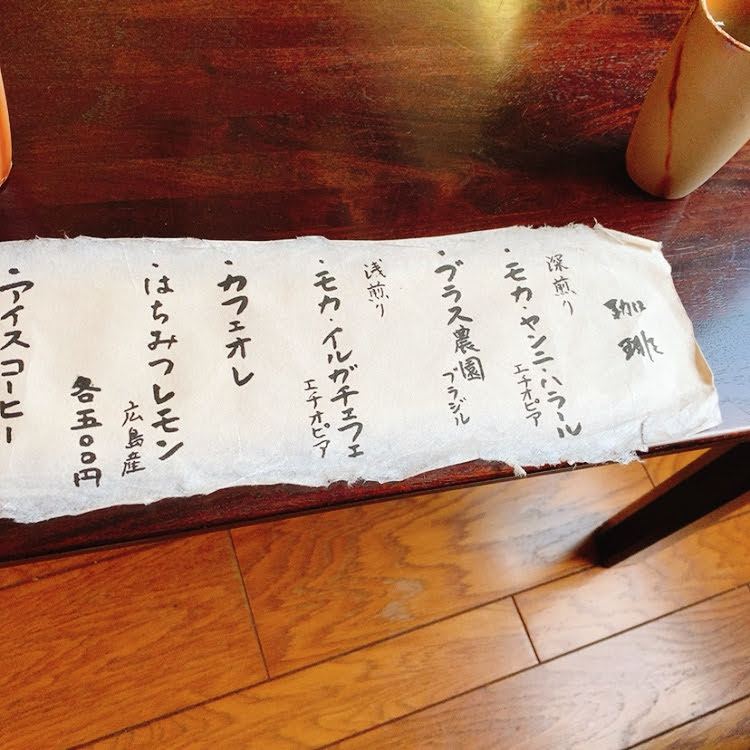 珈琲
深煎り
・モカ・ヤンニ・ハラール
エチオピア
・ブラス農園 ブラジル
浅煎り
・モカ・イルガチェフェ
エチオピア
・カフェオレ
・はちみつレモン
広島産
各五〇〇円
・アイスコーヒー